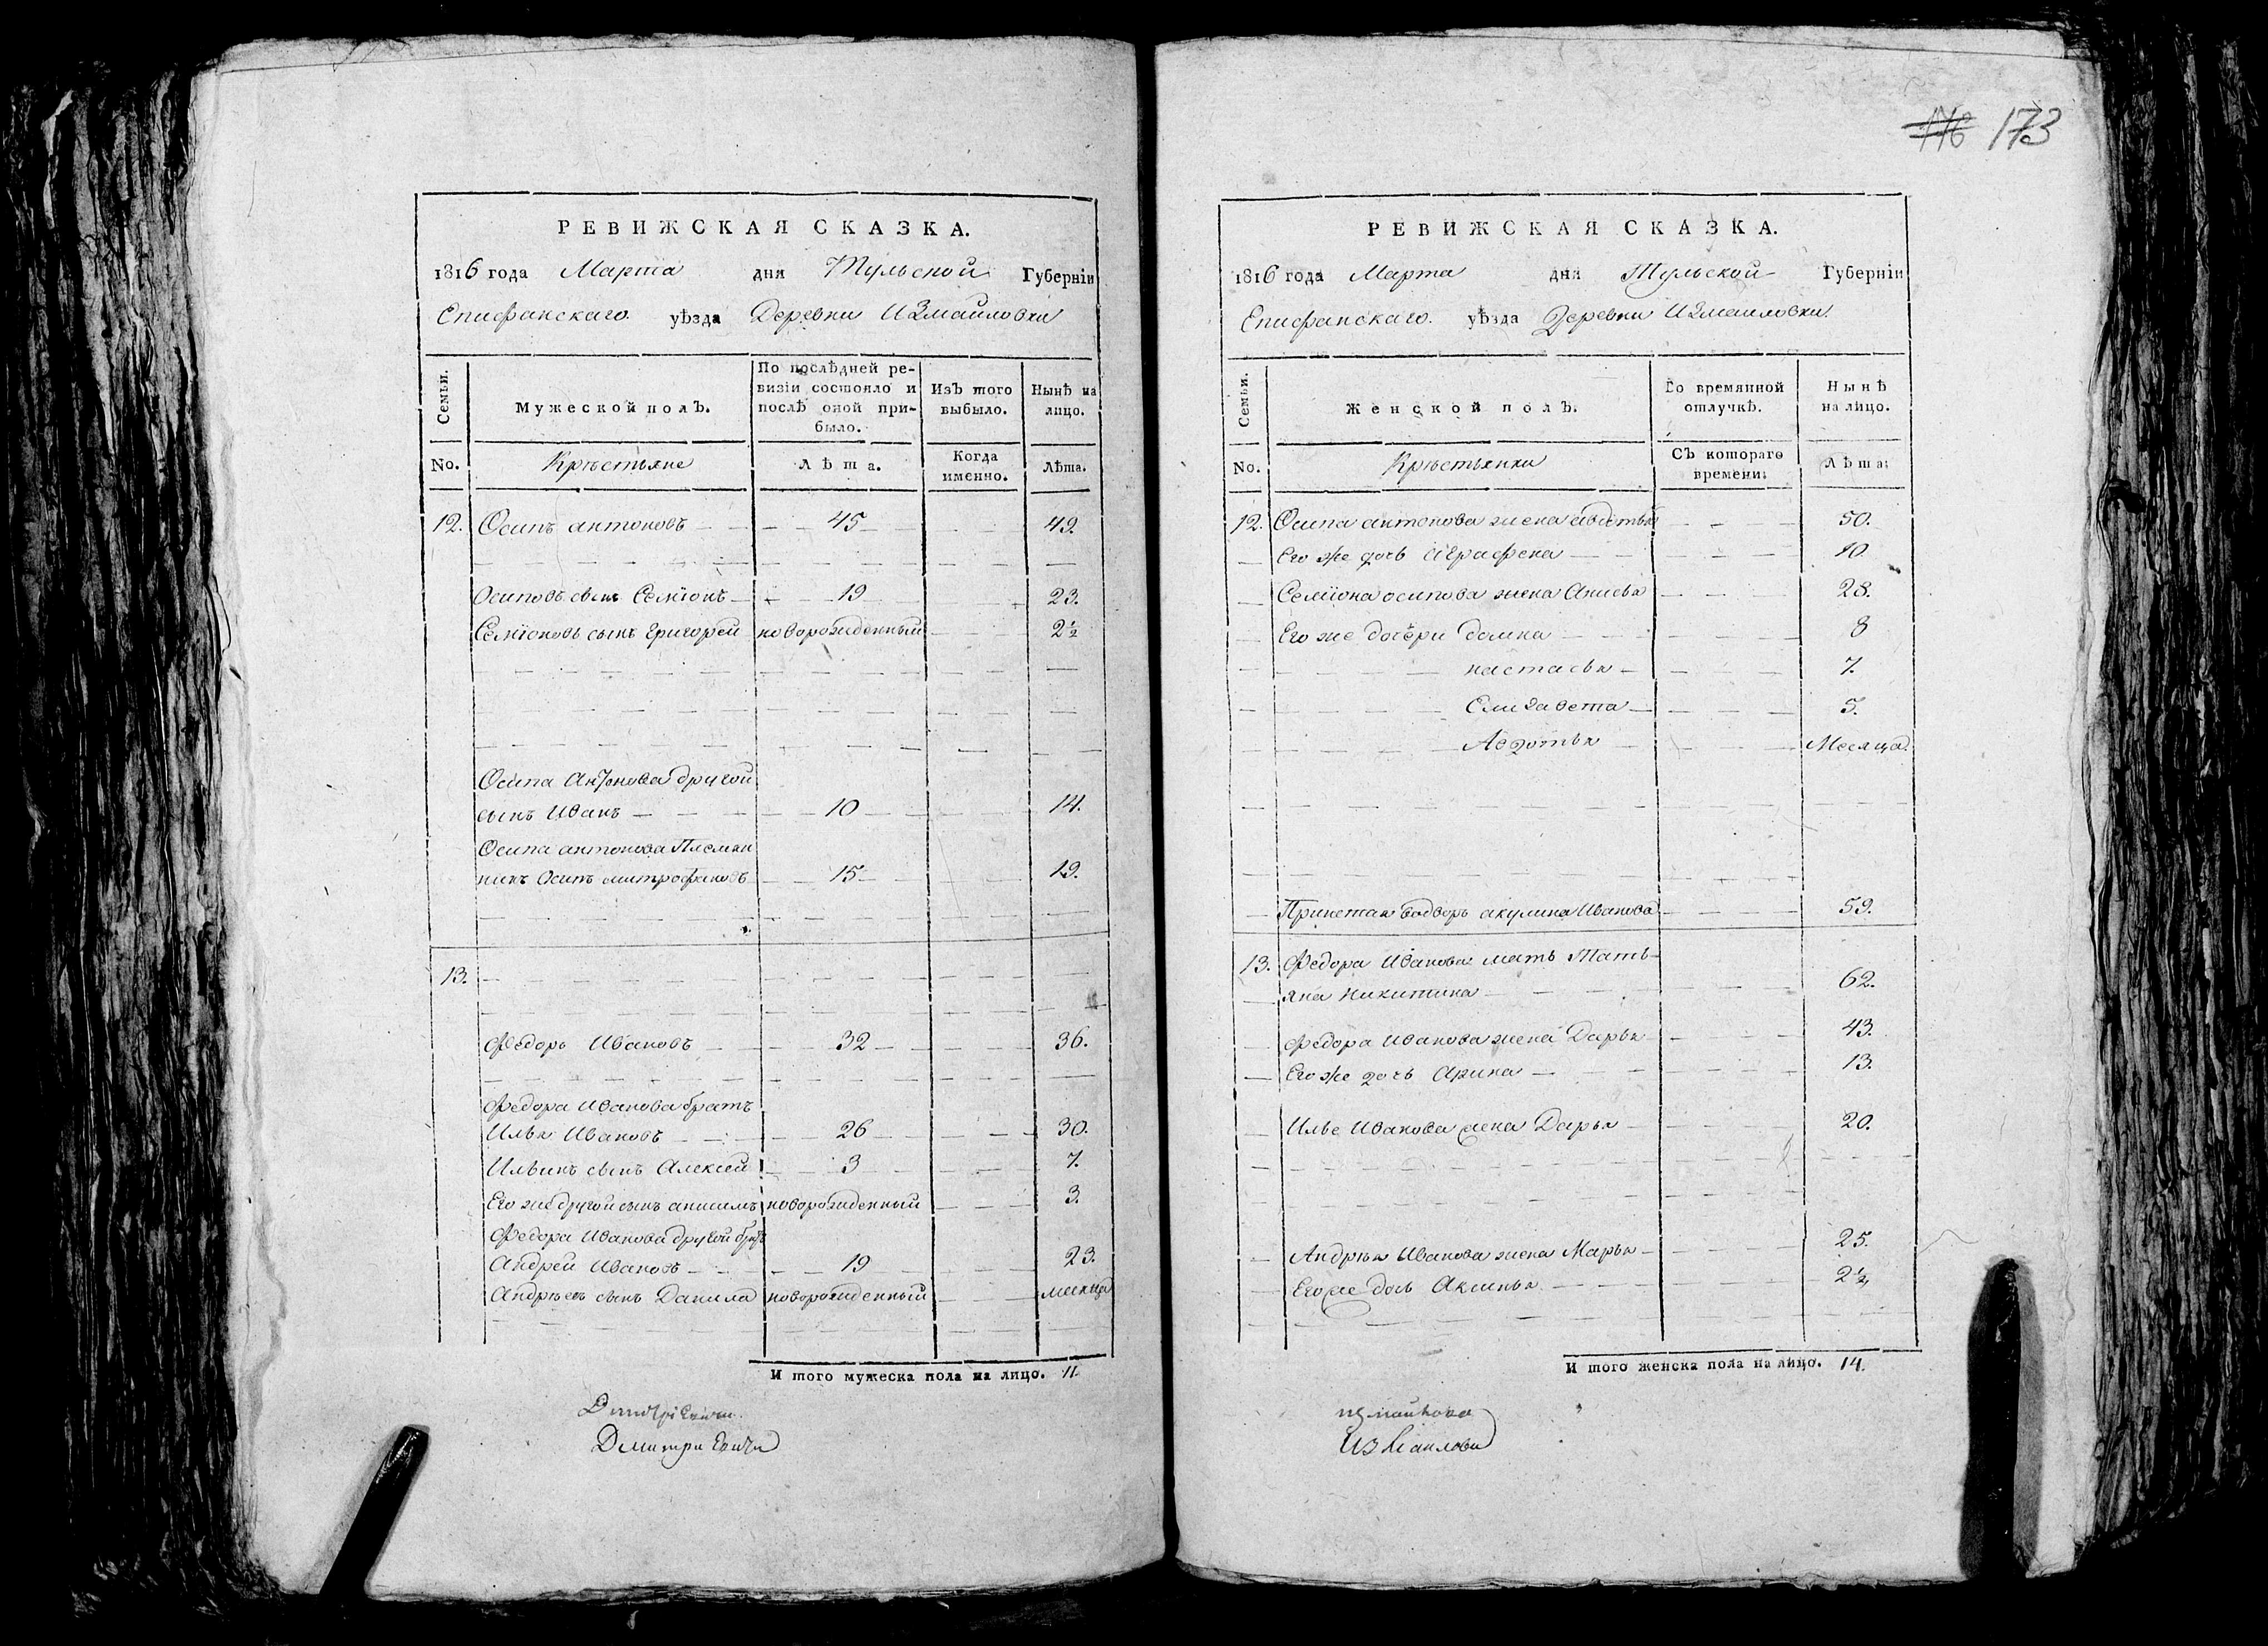 РЕВИЖСКАЯ СКАЗКА.
1816 года Марта дня Тульской Губерніи
Епифанскаго уѣзда Деревни Измаиловки
Семьи.
Мужеской полъ.
По послѣдней ре-
визіи состояло и
послѣ оной при-
было.
Изъ того
выбыло.
Нынѣ на
лицо.
No.
Крѣстьяне
Лѣта.
Когда
именно.
Лѣта.
12. Осипъ антоновъ 45 49.
Осиповъ сынъ Семіонъ 19 23.
Семіоновъ сынъ Григорей новорожденный 2½
Осипа Антонова другой
сынъ Иванъ 10 14.
Осипа антонова Племян
никъ Осипъ митрофановъ 15 19.
13.
Федоръ Ивановъ 32 36.
Федора Иванова братъ
Илья Ивановъ 26 30.
Ильинъ сынъ Алексей 3 7.
Его же другой сынъ анисимъ новорожденный 3.
Федора Иванова другой братъ
Андрей Ивановъ 19 23.
Андрѣевъ сынъ Данила новорожденный месяца
И того мужеска пола на лицо. 11.
Дмитріевичи
Дмитриевичи
173
РЕВИЖСКАЯ СКАЗКА.
1816 года Марта дня Тульской Губерніи
Епифанскаго уѣзда Деревни Измаиловки.
Семьи.
Женской полъ.
Во времянной
отлучкѣ.
Нынѣ
на лицо.
No.
Крѣстьянки
Съ котораго
времени.
Лѣта.
12. Осипа антонова жена авдотья 50.
Его же дочь Аграфена 10.
Семіона осипова жена Анисья 28.
Его же дочери домна 8
настасья 7.
Елизавета 5.
Авдотья Месяца.
Принетая водворъ акулина Иванова 59.
13. Федора Иванова мать Тать-
яна Никитина 62.
Федора Иванова жена Дарья 43.
Его же дочь Арина 13.
Илье Иванова жена Дарья 20.
Андрѣя Иванова жена Марья 25.
Его же дочь Аксинья 2½
И того женска пола на лицо. 14.
Измаилова